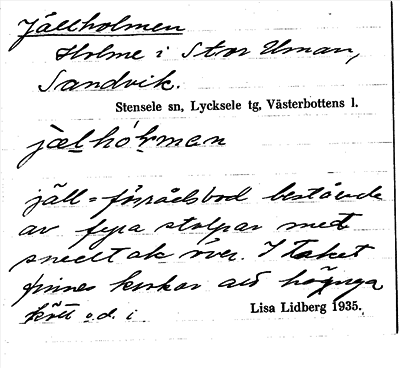 Jällholmen
Holme i Stor Uman,
Sandvik.
Stensele sn, Lycksele tg, Västerbottens l.
jäll = förrådsbod bestående
av fyra stolpar med
snedtak över. I taket
finnes krokar att hänga
kött o.d. i
Lisa Lidberg 1935.